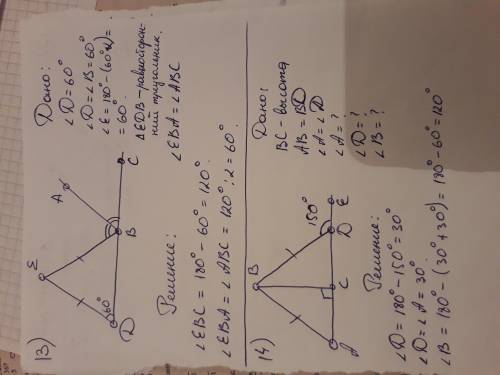 13)
E
A
60°
D
B
C
Дано:
∠D = 60°
∠D = ∠B = 60°
∠E = 180° - (60°·2) =
= 60°
△EDB - равносторон-
ний треугольник.
∠EBA = ∠ABC
Решение:
∠EBC = 180° - 60° = 120°
∠EBA = ∠ABC = 120° : 2 = 60°.
14)
B
150°
A
C
D
E
Дано:
BC - высота
AB = BD
∠A = ∠D
∠A = ?
∠D = ?
∠B = ?
Решение:
∠D = 180° - 150° = 30°
∠D = ∠A = 30°.
∠B = 180° - (30° + 30°) = 180° - 60° = 120°